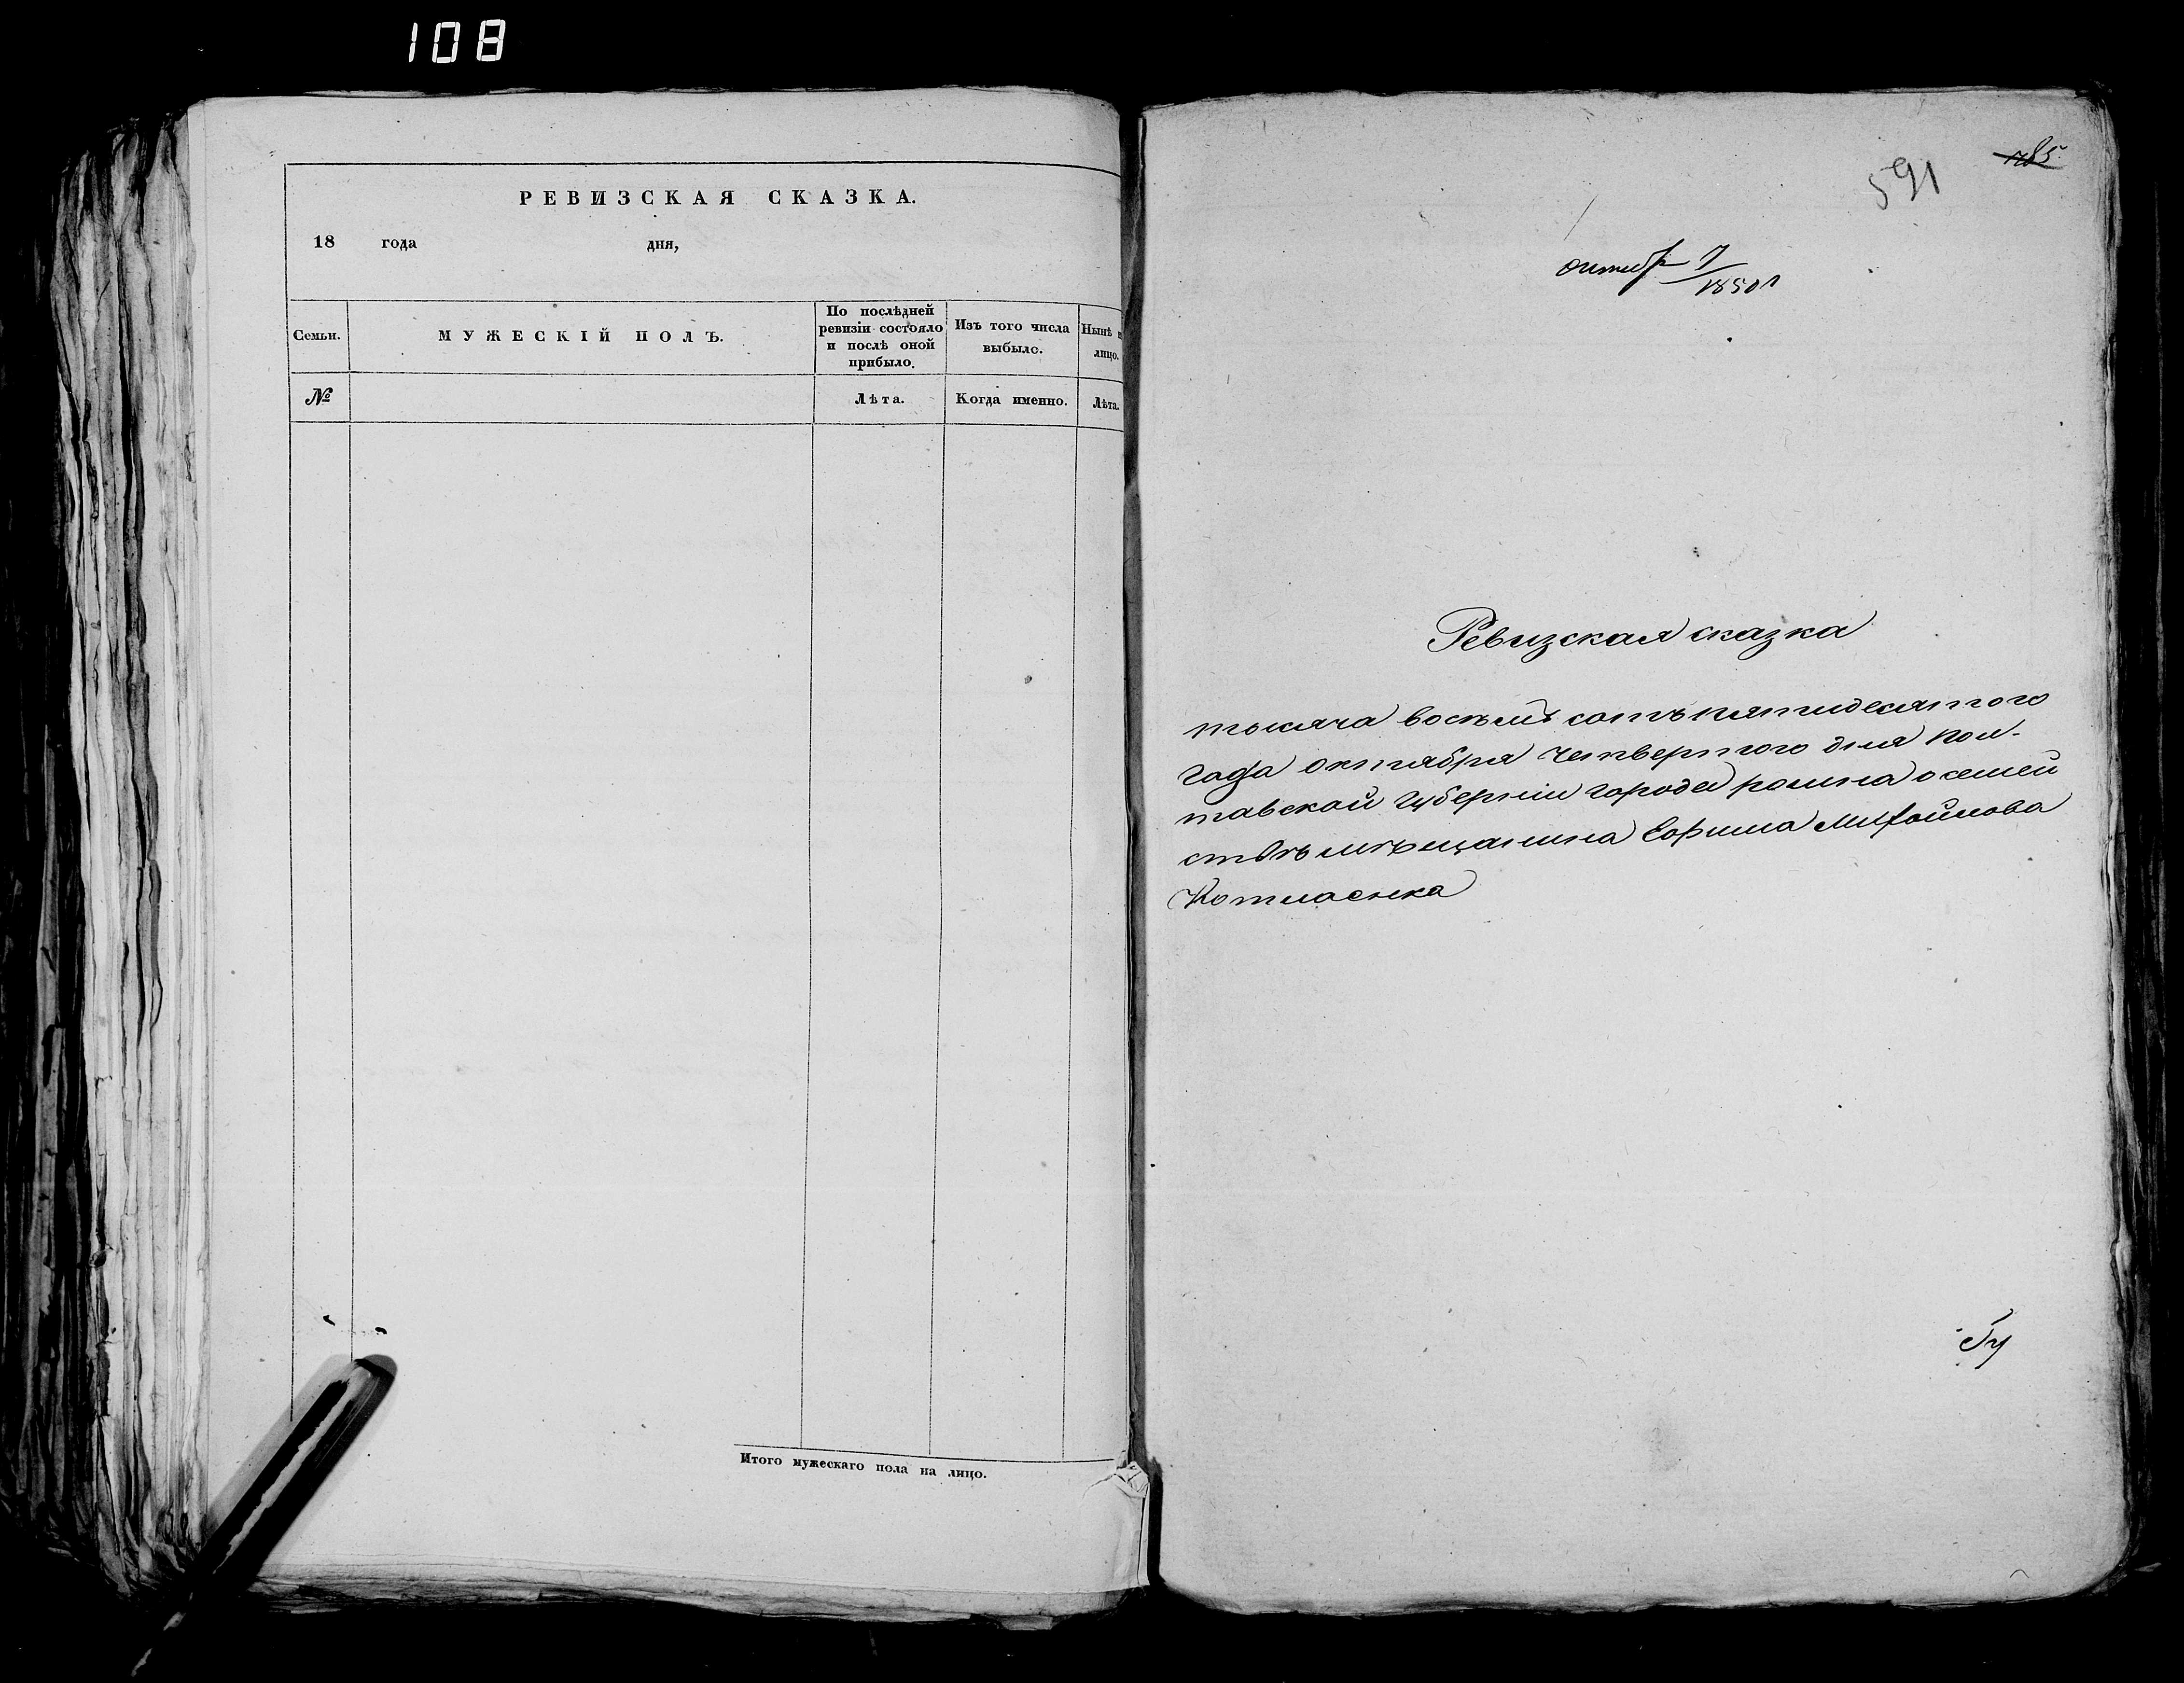 108
РЕВИЗСКАЯ СКАЗКА.
18 года дня,
Семьи.
МУЖЕСКІЙ ПОЛЪ.
По послѣдней
ревизіи состояло
и послѣ оной
прибыло.
Изъ того числа
выбыло.
Нынѣ
лицо.
№
Лѣта.
Когда именно.
Лѣта.
Итого мужескаго пола на лицо.
785
591
октяб 7
1850
Ревизская сказка
тысяча восѣмъ сотъ пятидесятого
года октября четвертого дня пол-
тавской губерніи города ромна о семей
ствѣ мѣщанина Ефима Михайлова